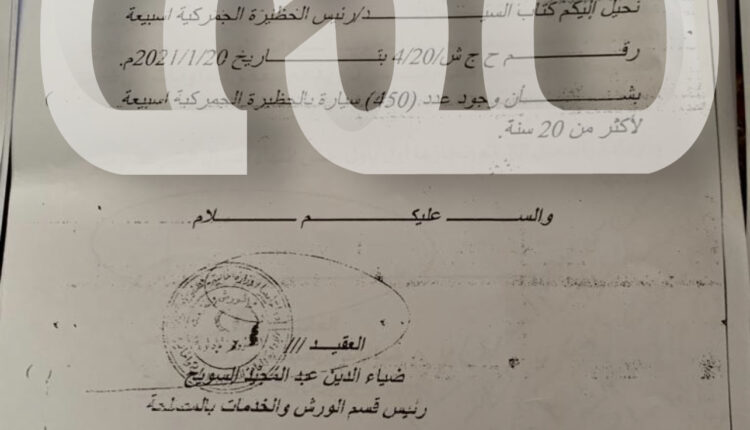 نحيل إليكم كتاب السيد/رئيس الحظيرة الجمركية اسبيعة
رقم ح ج ش/4/20 بتاريخ 2021/1/20م.
بشأن وجود عدد (450) سيارة بالحظيرة الجمركية اسبيعة
لأكثر من 20 سنة.
والسلام عليكم
العقيد ///
ضياء الدين عبد المجيد السويح
رئيس قسم الورش والخدمات بالمصلحة